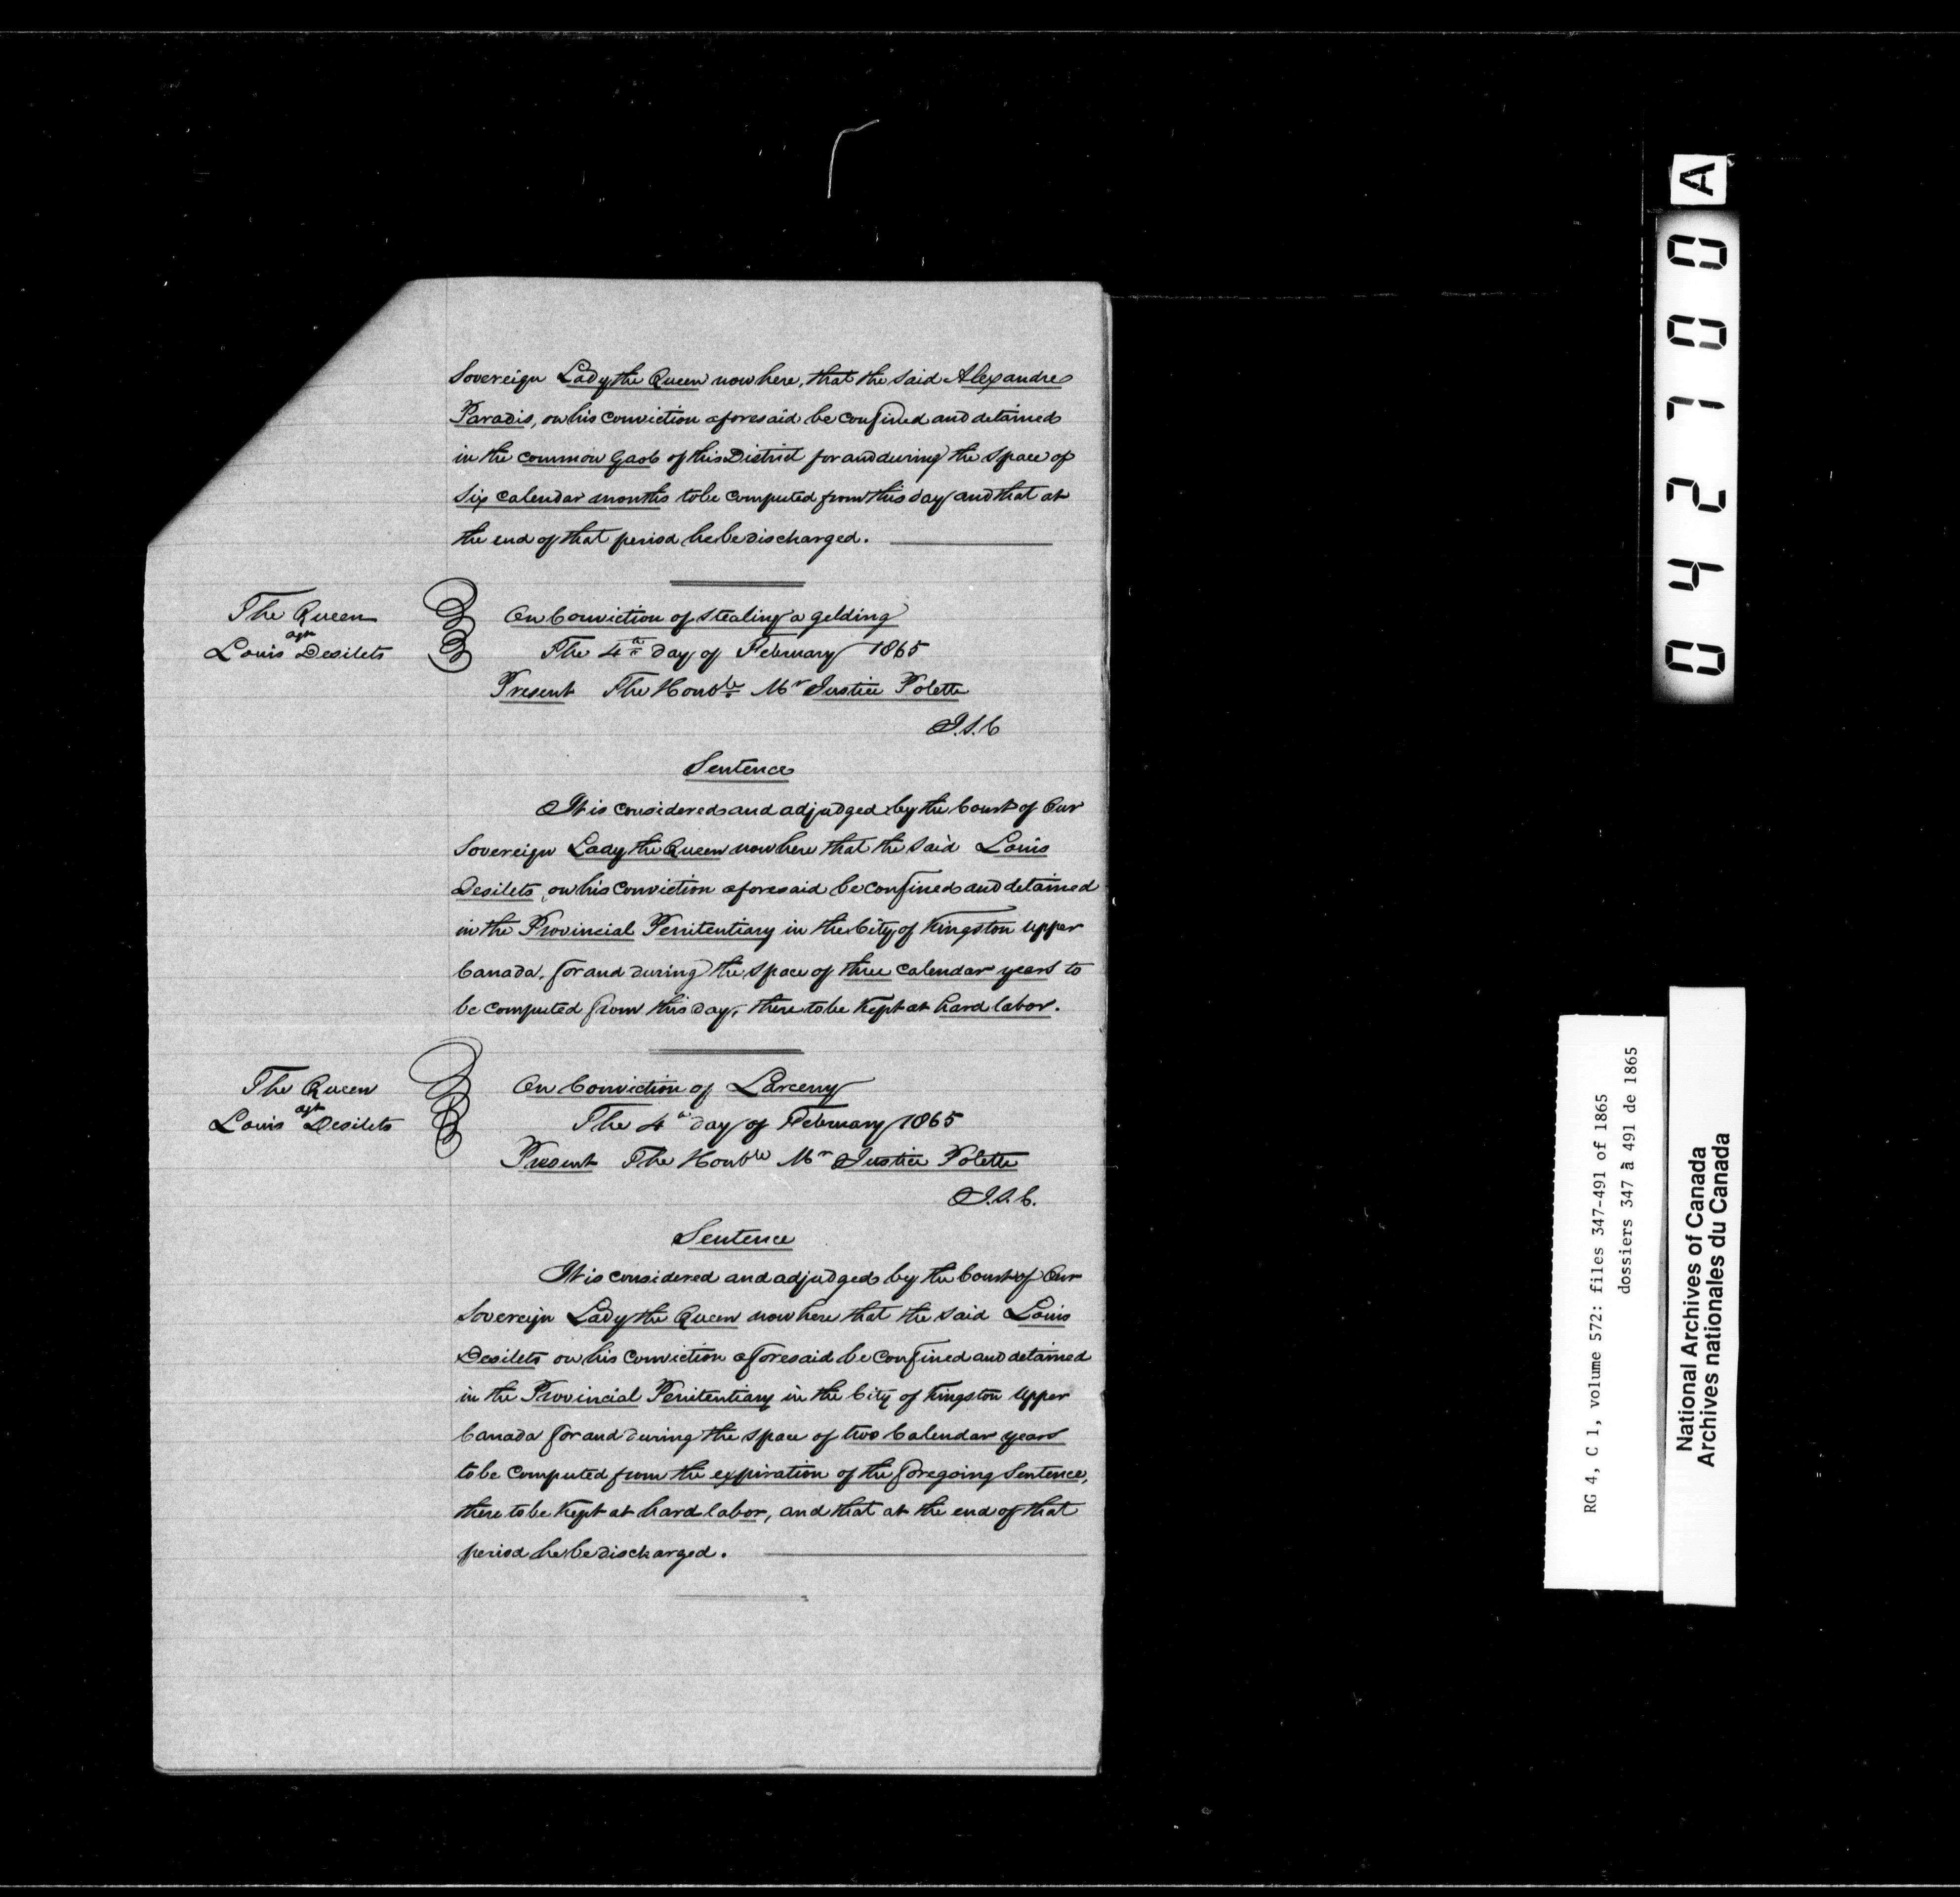 Sovereign Lady the Queen now here, that the said Alexandre
Paradis, on his conviction aforesaid be confined and detained
in the common Gaol of this District for and during the space of
six calendar months to be computed from this day and that at
the end of that period he be discharged.
The Queen
agt
Louis Desilets
On Conviction of stealing a gelding
The 4th day of February 1865
Present The Honble Mr Justice Polette
J.S.C
Sentence
It is considered and adjudged by the Court of Our
Sovereign Lady the Queen now here that the said Louis
Desilets, on his conviction aforesaid be confined and detained
in the Provincial Penitentiary in the City of Kingston Upper
Canada, for and during the space of three calendar years to
be computed from this day, there to be kept at hard labor.
The Queen
agt
Louis Desilets
On Conviction of Larceny
The 4th day of February 1865
Present The Honble Mr Justice Polette
J.S.C.
Sentence
It is considered and adjudged by the Court of Our
Sovereign Lady the Queen now here that the said Louis
Desilets on his conviction aforesaid be confined and detained
in the Provincial Penitentiary in the City of Kingston Upper
Canada for and during the space of two Calendar years
to be computed from the expiration of the foregoing Sentence,
there to be kept at hard labor, and that at the end of that
period he be discharged.
042700 A
RG 4, C 1, volume 572: files 347-491 of 1865
dossiers 347 à 491 de 1865
National Archives of Canada
Archives nationales du Canada